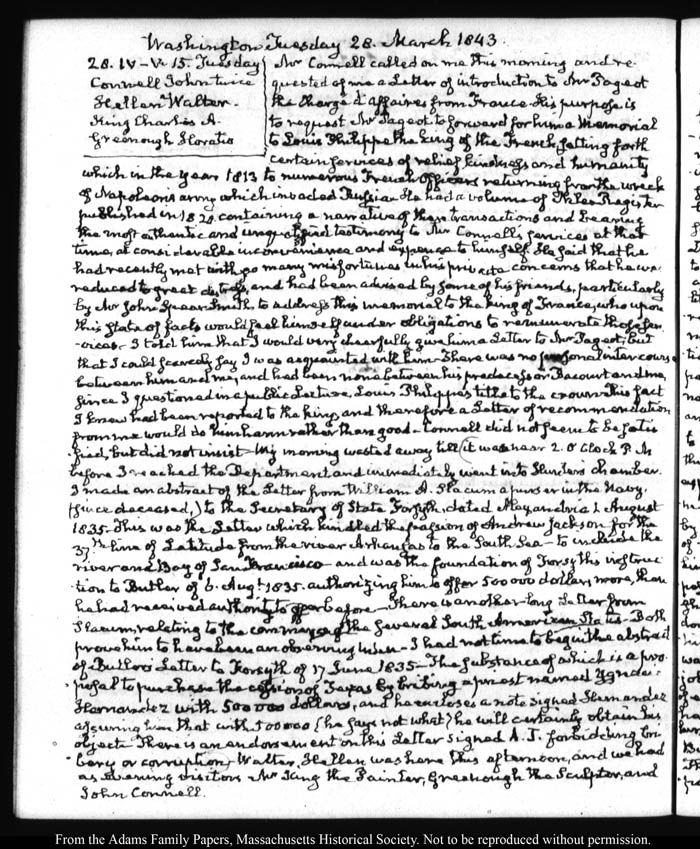 Washington Tuesday 28. March 1843.
28. IV-V. 15. Tuesday
Connell John twice
Hellen Walter.
King Charles A.
Greenough Horatio
Mr Connell called on me this morning and re-
quested of me a Letter of introduction to Mr Pageot
the Chargé d'affaires from France. His purpose is
to request Mr Pageot to forward for him a Memorial
to Louis Philippe the king of the French, setting forth
certain services of relief, kindness and humanity
which in the year 1813 to numerous French Officers returning from the wreck
of Napoleon's army which invaded Russia. He had a volume of Niles Register
published in 1820 containing a narrative of these transactions and bearing
the most authentic and unqualified testimony to Mr Connell's services at that
time, at considerable inconvenience and expence to himself. He said that he
had recently met with so many misfortunes in his private concerns that he was
reduced to great distress, and had been advised by some of his friends, particularly
by Mr John Spear Smith to address this memorial to the king of France, who upon
this state of facts would feel himself under obligations to remunerate those ser-
vices. I told him that I would very chearfully give him a Letter to Mr Pageot, but
that I could scarcely say I was acquainted with him. There was no personal intercourse
between him and me, and had been none between his predecessor Bacourt and me,
since I questioned in a public Lecture, Louis Philippe's title to the crown. This fact
I knew had been reported to the king and therefore a Letter of recommendation
from me would do him harm rather than good. Connell did not seem to be satis-
fied, but did not insist. My morning wasted away till it was near 2. O'Clock P.M
before I reached the Department and immediately went into chamber.
I made an abstract of the Letter from William A. Slacum a purser in the Navy,
(since deceased,) to the Secretary of State Forsyth, dated Alexandria 1. August
1835. This was the Letter which kindled the passion of Andrew Jackson for the
37th line of Latitude from the river Arkansas to the South Sea to include the
river and Bay of San Francisco and was the foundation of Forsyth's instruc-
tion to Butler of 6. Augt 1835. authorizing him to offer 500 000 dollars more, than
he had received authority to offer before. There is another long Letter from
Slacum, relating to the commerce of the several South American States. Both
prove him to have been an observing man. I had not time to begin the abstract
of Butler's Letter to Forsyth of 17 June 1835. The substance of which is a pro-
posal to purchase the cession of Texas by bribing a priest named
Hernandez with 500 000 dollars, and he encloses a note signed Hernandez
assuring him that with 500000 (he says not what) he will certainly obtain his
object. There is an endorsement on this Letter signed A. J. forbidding bri-
bery or corruption. Walter Hellen was here this afternoon, and we had
as evening visitors Mr King the Painter, Greenough the Sculptor, and
John Connell.
From the Adams Family Papers, Massachusetts Historical Society. Not to be reproduced without permission.